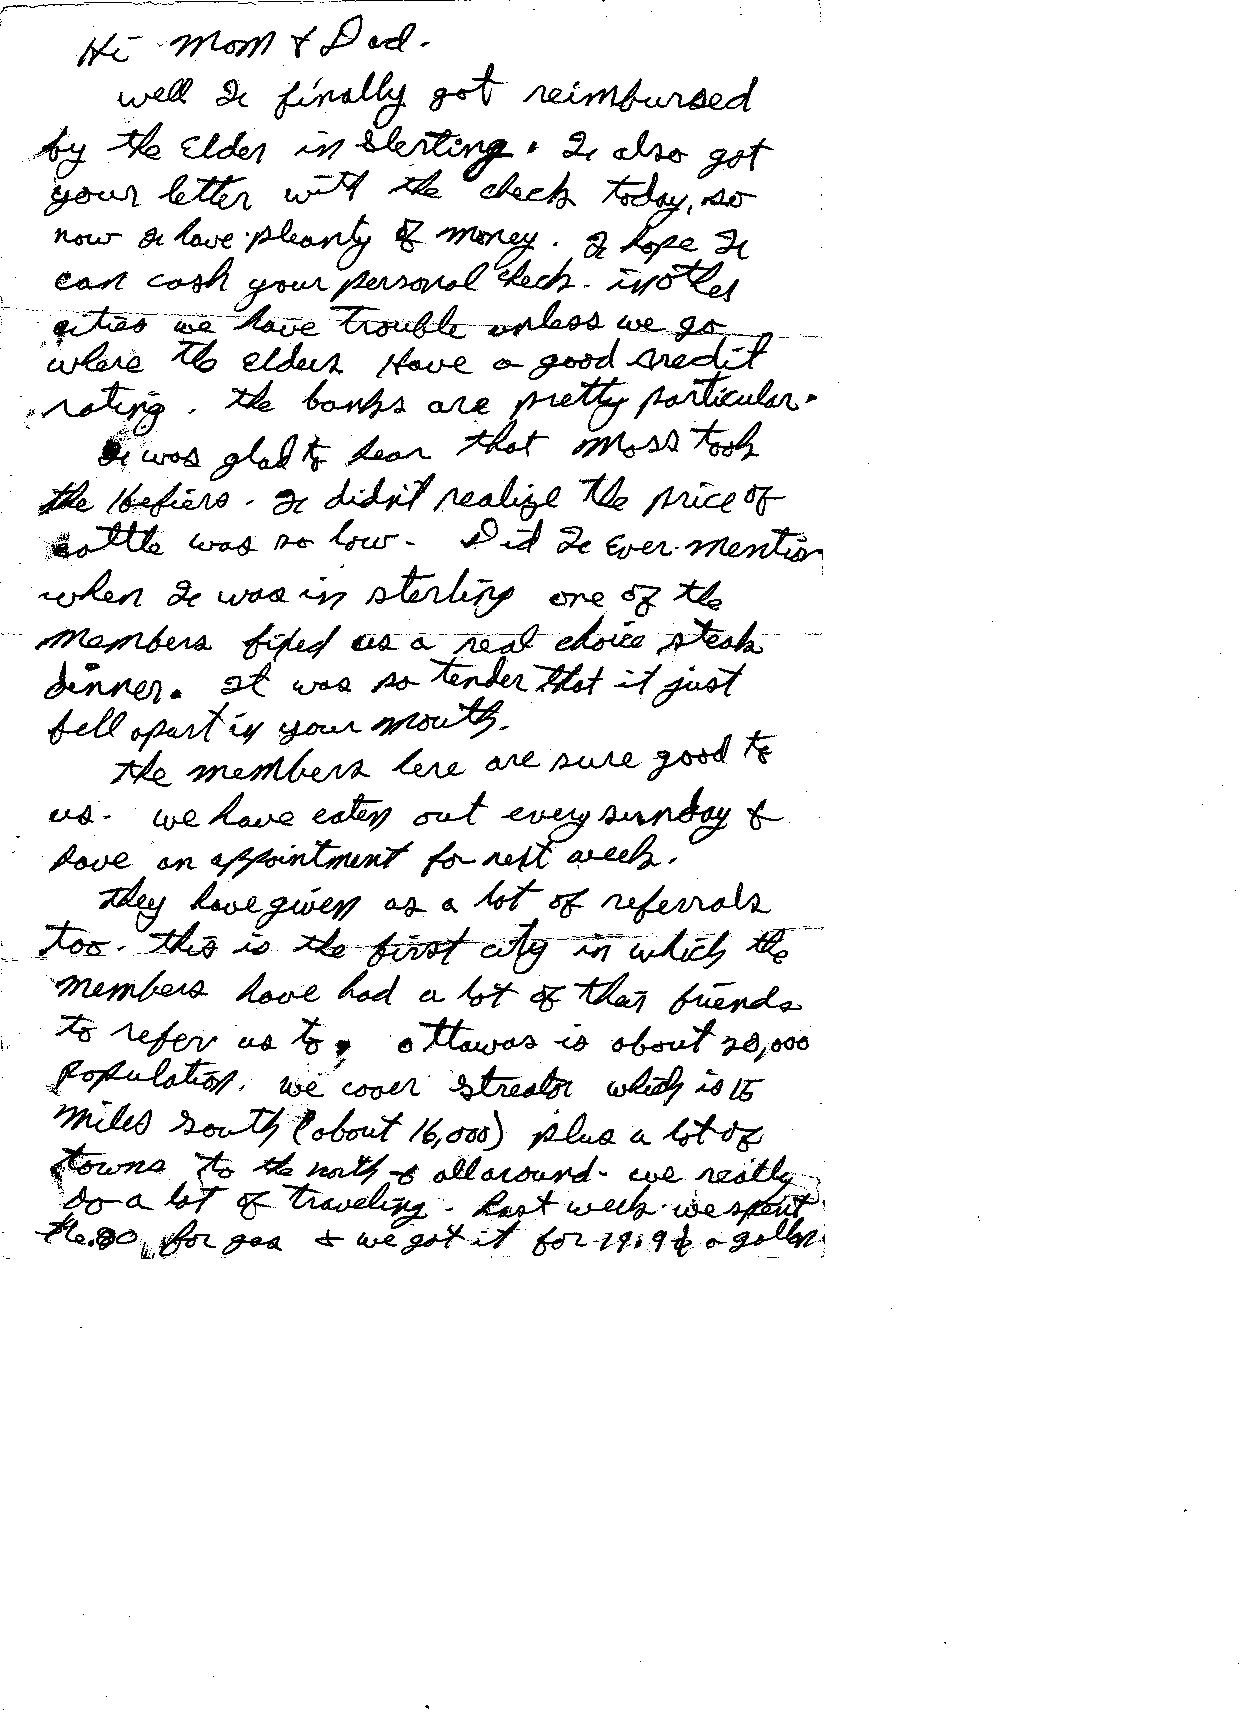 Hi Mom & Dad.
well I finally got reimbursed
by the Elder in Sterling. I also got
your letter with the check today, so
now I have pleanty of money. I hope I
can cash your personal check. in other
cities we have trouble unless we go
where the elders Have a good credit
rating. the banks are pretty particular.
I was glad to hear that Moss took
the Hefiers. I didn't realize the price of
cattle was so low. Did I Ever mention
when I was in sterling one of the
members fixed us a real choice steak
dinner. It was so tender that it just
fell apart in your mouth.
the members here are sure good to
us. we have eaten out every sunday &
have an appointment for next week.
they have given us a lot of referrals
too. this is the first city in which the
members have had a lot of their friends
to refer us to, ottawas is about 20,000
population. we cover streator which is 15
miles south (about 16,000) plus a lot of
towns to the north & all around. we really
do a lot of traveling. Last week we spent
for gas & we got it for 19.9¢ a gallon.